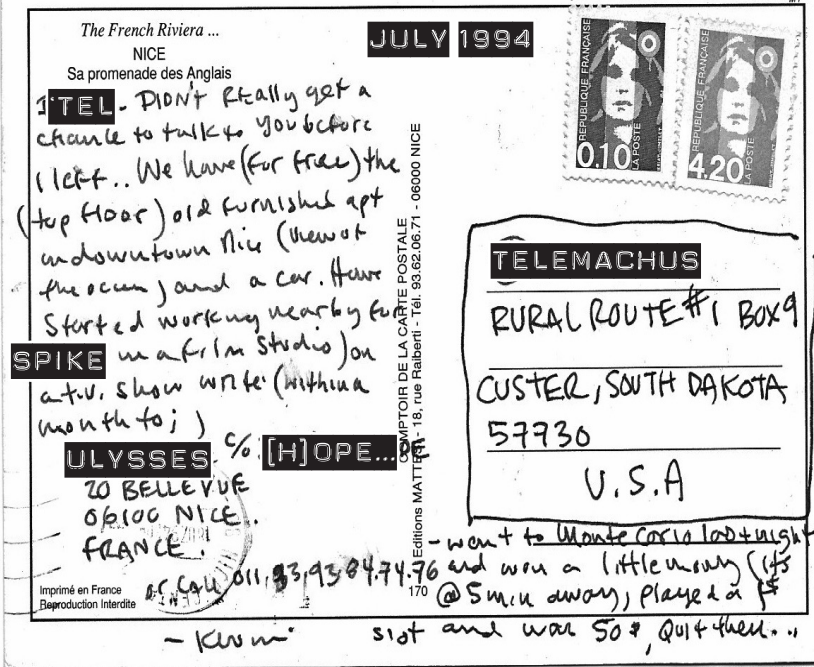 The French Riviera ...
NICE
Sa promenade des Anglais
JULY 1994
TEL. DIDN'T REALLY get a
chance to talk to you before
I left.. We have (for free) the
(top floor) old furnished apt
in downtown Nice (view of
the ocean) and a car. Have
Started working nearby for
SPIKE in a film studio) on
a t.v. show write (within a
month to; )
ULYSSES c/o [H]OPE...
20 BELLEVUE
06100 NICE.
FRANCE.
or CALL 011,33,93 84.74.76
Imprimé en France
Reproduction Interdite
- Kevin
COMPTOIR DE LA CARTE POSTALE
Editions MATTEI - 18, rue Raiberti - Tél. 93.62.06.71 - 06000 NICE
170
REPUBLIQUE FRANÇAISE
0.10
LA POSTE
REPUBLIQUE FRANÇAISE
4.20
LA POSTE
TELEMACHUS
RURAL ROUTE #1 BOX 9
CUSTER, SOUTH DAKOTA
57730
U.S.A
- went to Monte Carlo last night
and won a little money (it's
@ 5 min away, played a 1$
slot and won 50$, Quit then...